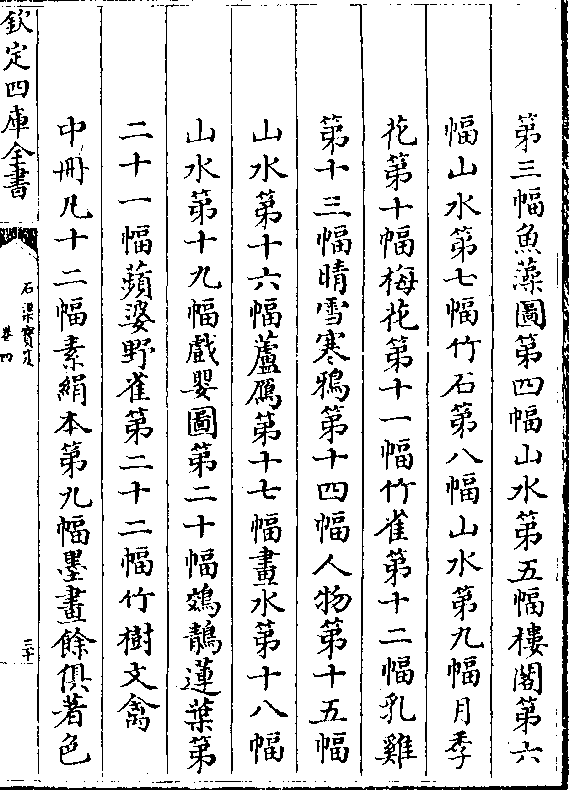 第三幅魚藻圖第四幅山水第五幅樓閣第六
幅山水第七幅竹石第八幅山水第九幅月季
花第十幅梅花第十一幅竹雀第十二幅乳雞
第十三幅晴雪寒鴉第十四幅人物第十五幅
山水第十六幅蘆鴈第十七幅畫水第十八幅
山水第十九幅戲嬰圖第二十幅鵁鶄蓮葉第
二十一幅蘋婆野雀第二十二幅竹樹文禽
中冊凡十二幅素絹本第九幅墨畫餘俱著色
欽定四庫全書
石渠寶笈
卷四
三十